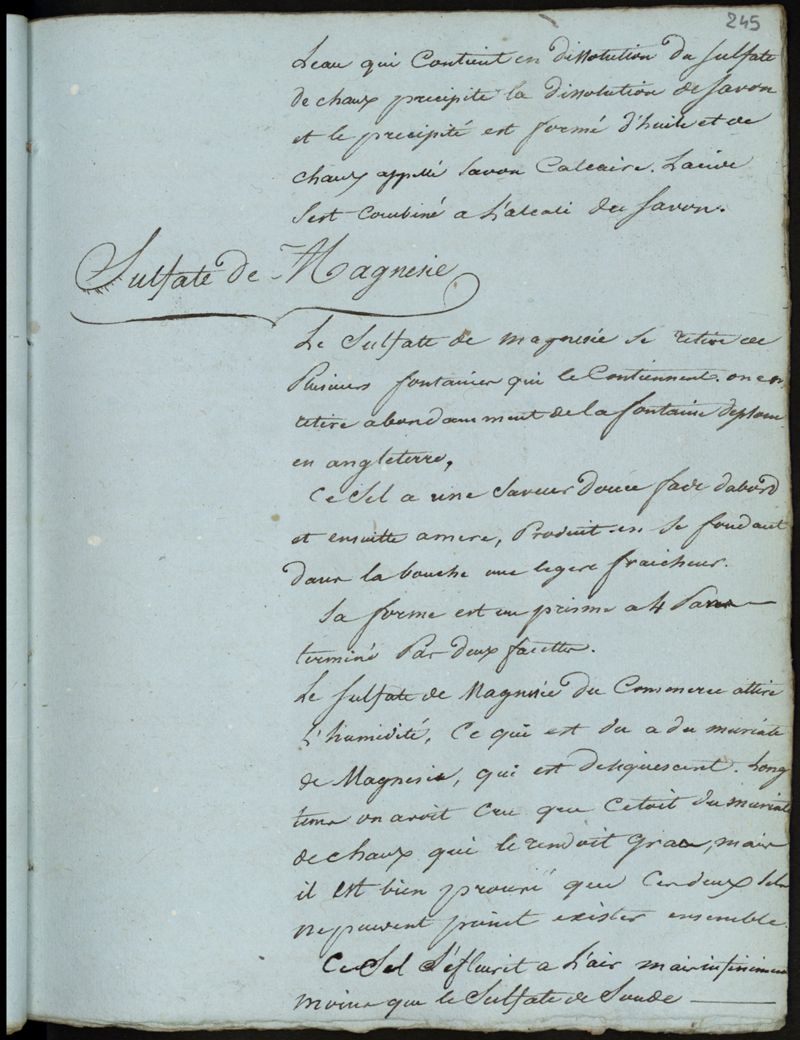 245
L'eau qui Contient en dissolution du sulfate
de chaux precipite la dissolution de savon
et le precipité est formé d'huile et de
chaux appellé Savon Calcaire. L'acide
s'est combiné a L'alcali du savon.
Sulfate de Magnesie
Le Sulfate de magnesie se retire de
Plusieurs fontaines qui le Contiennent. on en
retire abondamment de la fontaine depsom
en angleterre,
Ce Sel a une Saveur douce fade dabord
et ensuitte amere, Produit en se fondant
dans la bouche une legere fraicheur.
Sa forme est un prisme a 4 Pans
terminé Par deux facettes.
Le sulfate de Magnesie du Commerce attire
L'humidité, Ce qui est du a du muriate
de Magnesie, qui est deliquescent. Long
tems on avoit Cru que C'etoit du muriate
de chaux qui le rendoit gras, mais
il est bien prouvé que Ces deux sels
ne peuvent point exister ensemble.
Ce Sel S'efleurit a L'air mais infiniment
moins que le Sulfate de Soude